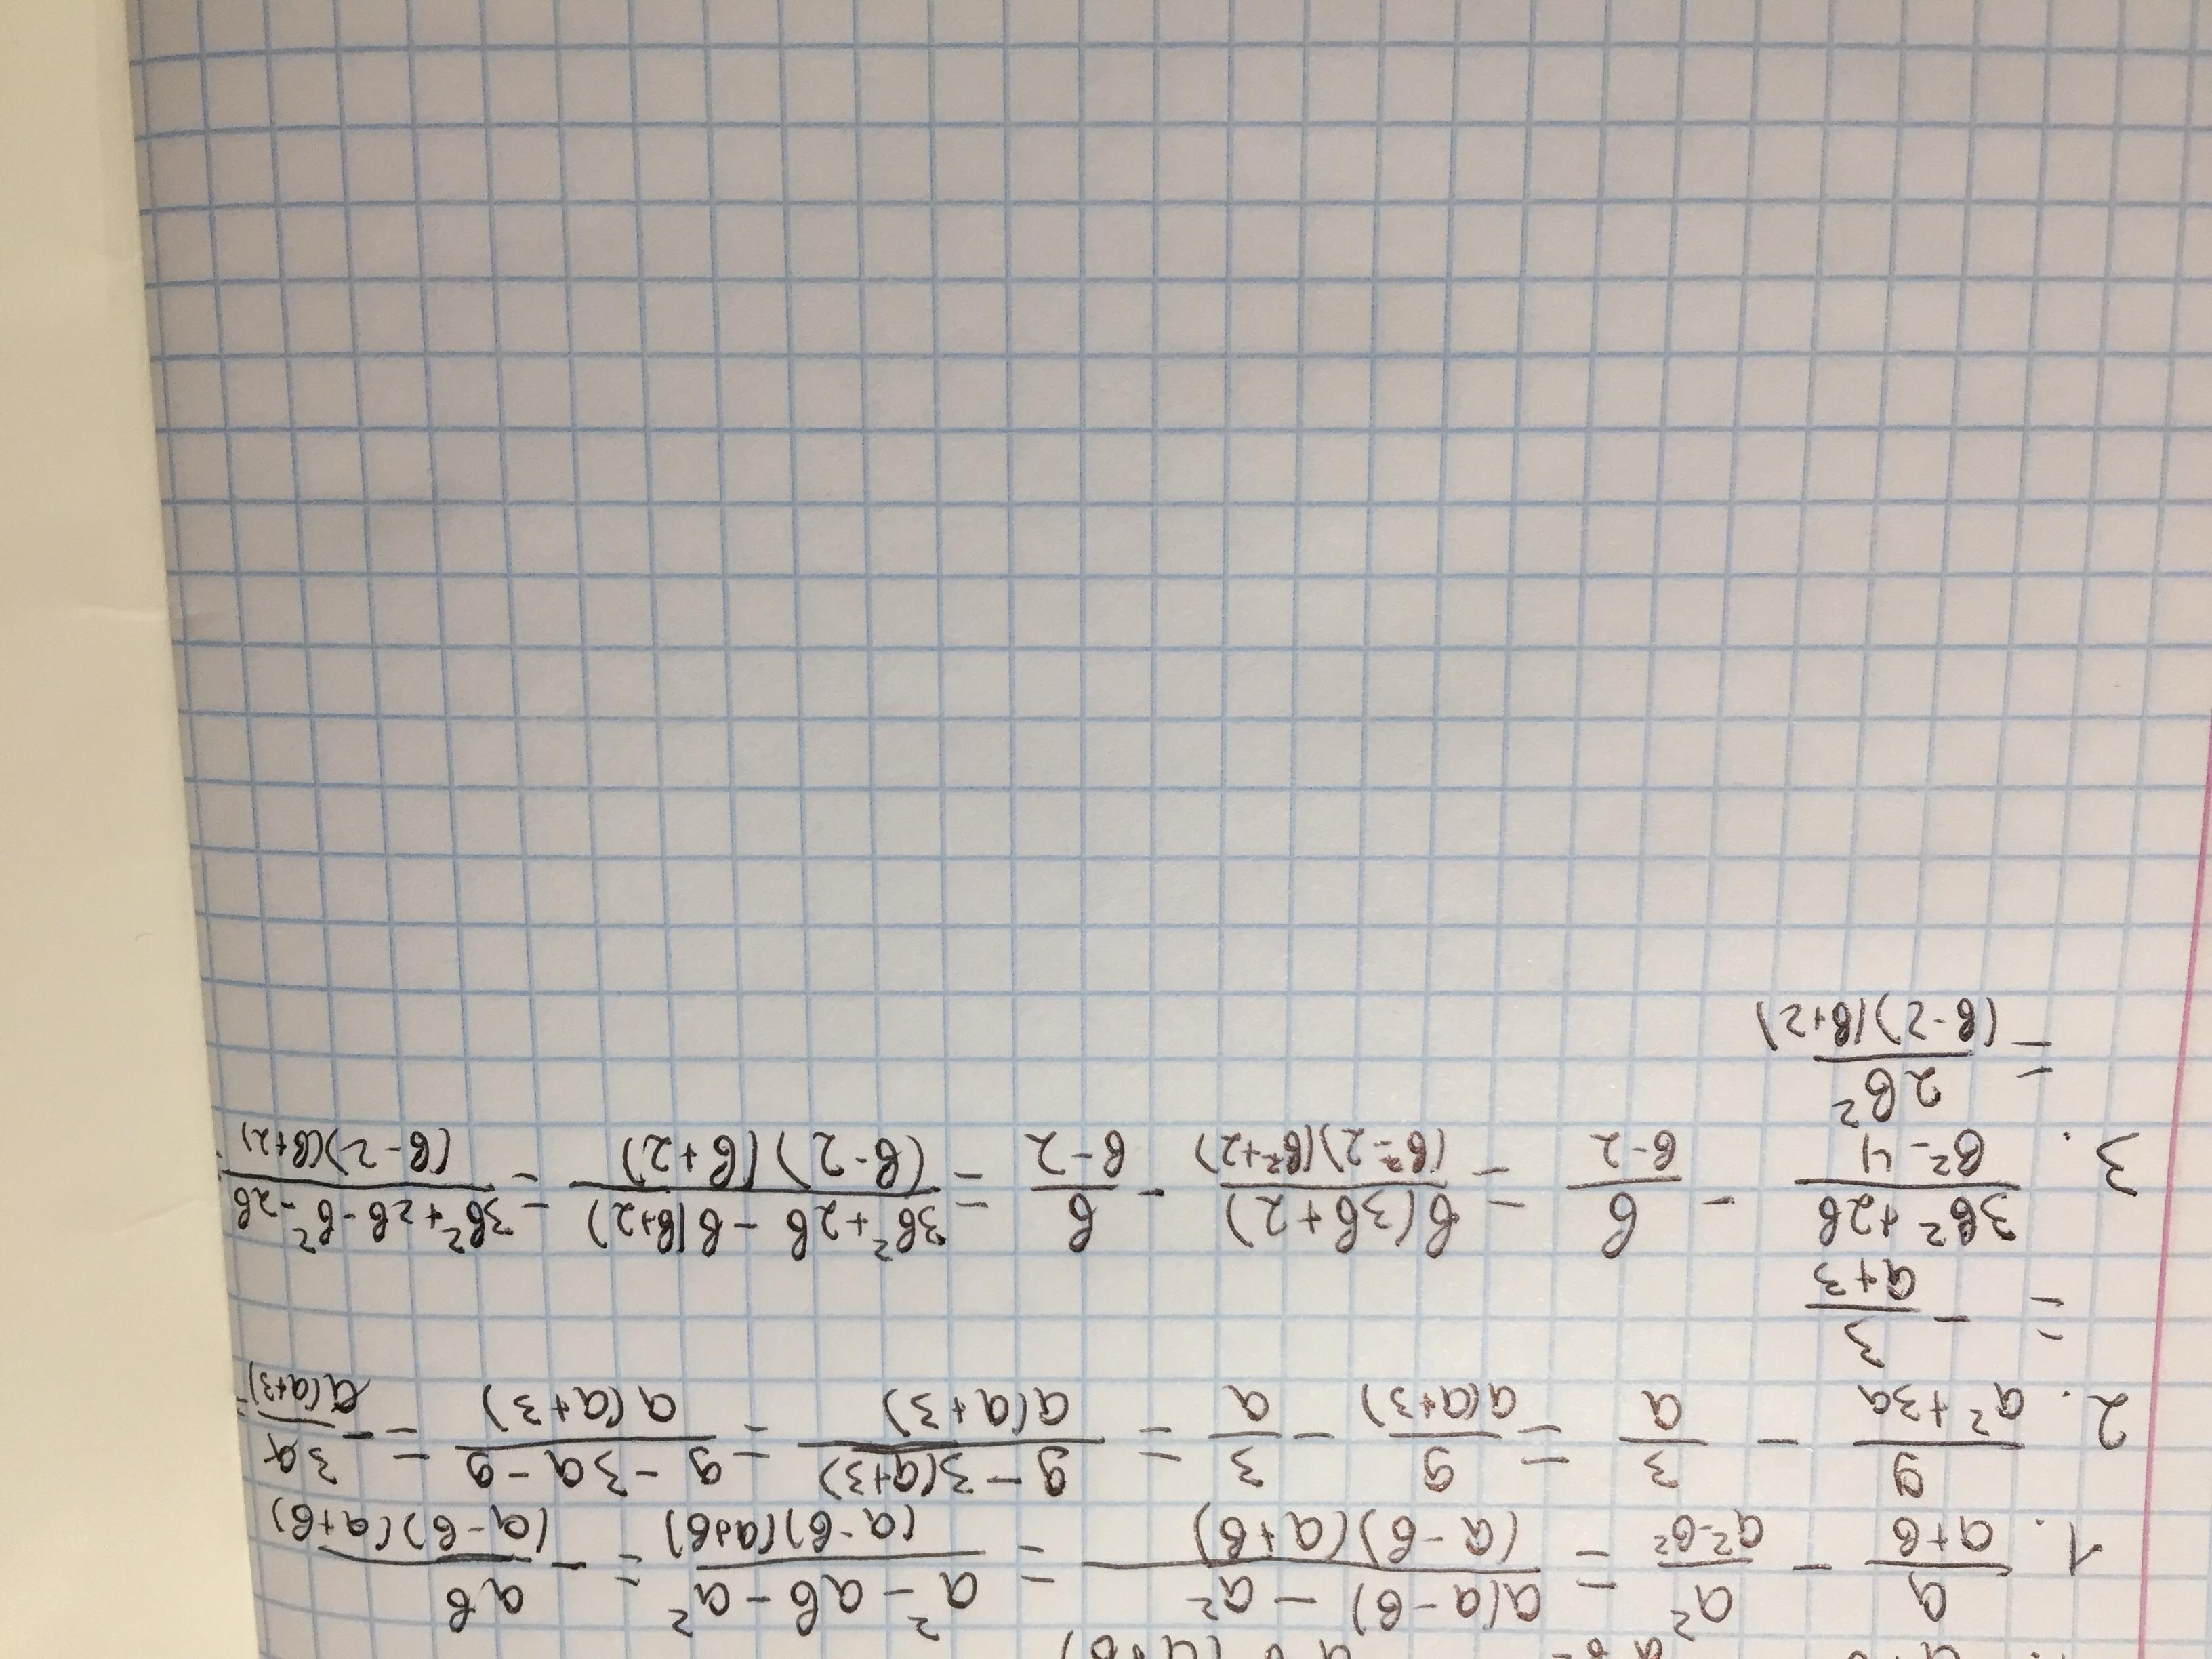 1. a/(a+b) - a²/(a²-b²) = (a(a-b) - a²)/((a-b)(a+b)) = (a² - ab - a²)/((a-b)(a+b)) = - ab/((a-b)(a+b))
2. 9/(a²+3a) - 3/a = 9/(a(a+3)) - 3/a = (9 - 3(a+3))/(a(a+3)) = (9 - 3a - 9)/(a(a+3)) = - 3a/(a(a+3)) =
= - 3/(a+3)
3. (3b²+2b)/(b²-4) - b/(b-2) = b(3b+2)/((b²-2)(b²+2)) - b/(b-2) = (3b²+2b - b(b+2))/((b-2)(b+2)) = (3b²+2b-b²-2b)/((b-2)(b+2)) =
= 2b²/((b-2)(b+2))